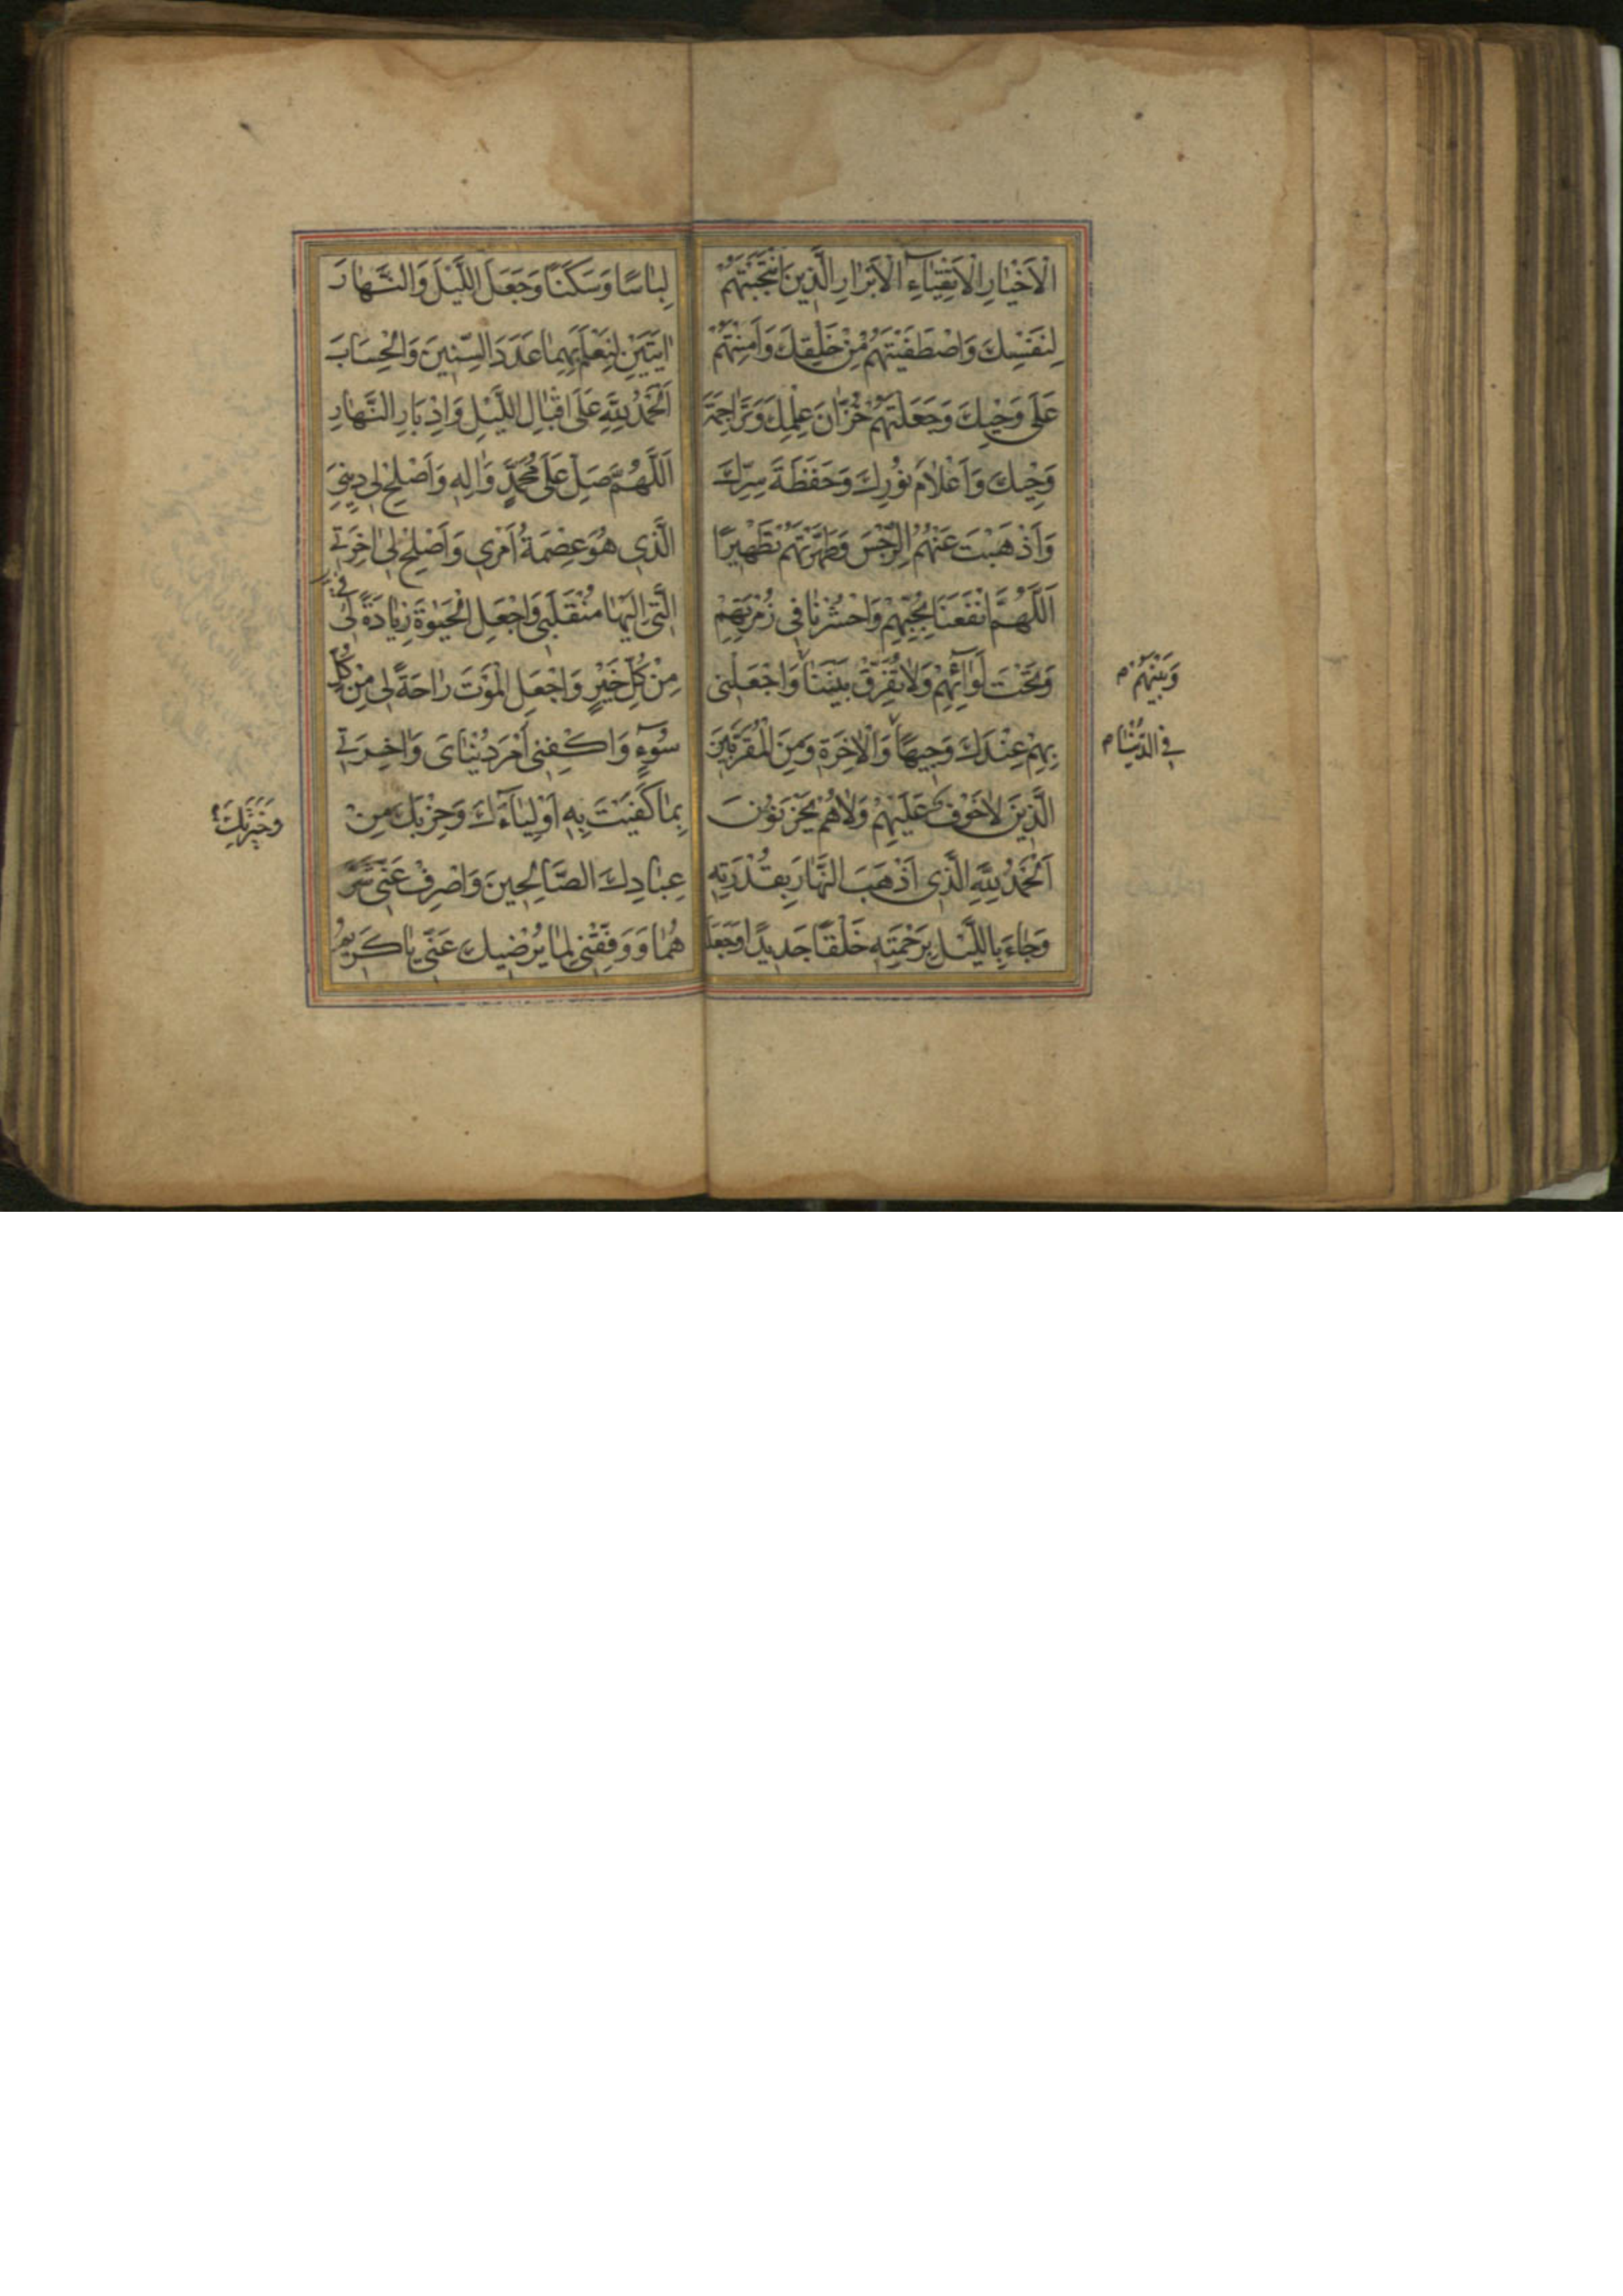 الْاَخْيٰارِ الْاَتْقِيٰآءِ الْاَبْرٰارِ الَّذِينَ انْتَجَبْتَهُمْ
لِنَفْسِكَ وَاصْطَفَيْتَهُمْ مِنْ خَلْقِكَ وَاَمِنْتَهُمْ
عَلٰى وَحْيِكَ وَجَعَلْتَهُمْ خُزّٰانَ عِلْمِكَ وَتَرٰاجِمَةَ
وَحْيِكَ وَاَعْلٰامَ نُورِكَ وَحَفَظَةَ سِرِّكَ
وَاَذْهَبْتَ عَنْهُمُ الرِّجْسَ وَطَهَّرْتَهُمْ تَطْهِيرًا
اَللّٰهُمَّ انْفَعْنَا بِحُبِّهِمْ وَاحْشُرْنٰا فِى زُمْرَتِهِمْ
وَتَحْتَ لِوٰآئِهِمْ وَلٰا تُفَرِّقْ بَيْنَنٰا وَاجْعَلْنِى
وَبَيْنَهُمْ م
بِهِمْ عِنْدَكَ وَجِيهًا وَالْاٰخِرَةِ وَمِنَ الْمُقَرَّبِينَ
فِى الدُّنْيٰا م
الَّذِينَ لٰا خَوْفٌ عَلَيْهِمْ وَلٰا هُمْ يَحْزَنُونَ
اَلْحَمْدُ لِلّٰهِ الَّذِى اَذْهَبَ النَّهٰارَ بِقُدْرَتِهِ
وَجٰاءَ بِاللَّيْلِ بِرَحْمَتِهِ خَلْقًا جَدِيدًا وَجَعَلَهُ
لِبٰاسًا وَسَكَنًا وَجَعَلَ اللَّيْلَ وَالنَّهٰارَ
اٰيَتَيْنِ لِنَعْلَمَ بِهِمٰا عَدَدَ السِّنِينَ وَالْحِسٰابَ
اَلْحَمْدُ لِلّٰهِ عَلٰى اِقْبٰالِ اللَّيْلِ وَاِدْبٰارِ النَّهٰارِ
اَللّٰهُمَّ صَلِّ عَلٰى مُحَمَّدٍ وَاٰلِهِ وَاَصْلِحْ لِى دِينِىَ
الَّذِى هُوَ عِصْمَةُ اَمْرِى وَاَصْلِحْ لِى اٰخِرَتِى
الَّتِى اِلَيْهٰا مُنْقَلَبِى وَاجْعَلِ الْحَيٰوةَ زِيٰادَةً لِى
مِنْ كُلِّ خَيْرٍ وَاجْعَلِ الْمَوْتَ رٰاحَةً لِى مِنْ كُلِّ
سُوٓءٍ وَاكْفِنِى اَمْرَ دُنْيٰاىَ وَاٰخِرَتِى
بِمٰا كَفَيْتَ بِهِ اَوْلِيٰآءَكَ وَحِزْبَكَ مِنْ
وَخِيَرَتَكَ
عِبٰادِكَ الصّٰالِحِينَ وَاصْرِفْ عَنِّى شَرَّ
هُمٰا وَوَفِّقْنِى لِمٰا يُرْضِيكَ عَنِّى يٰا كَرِيمُ